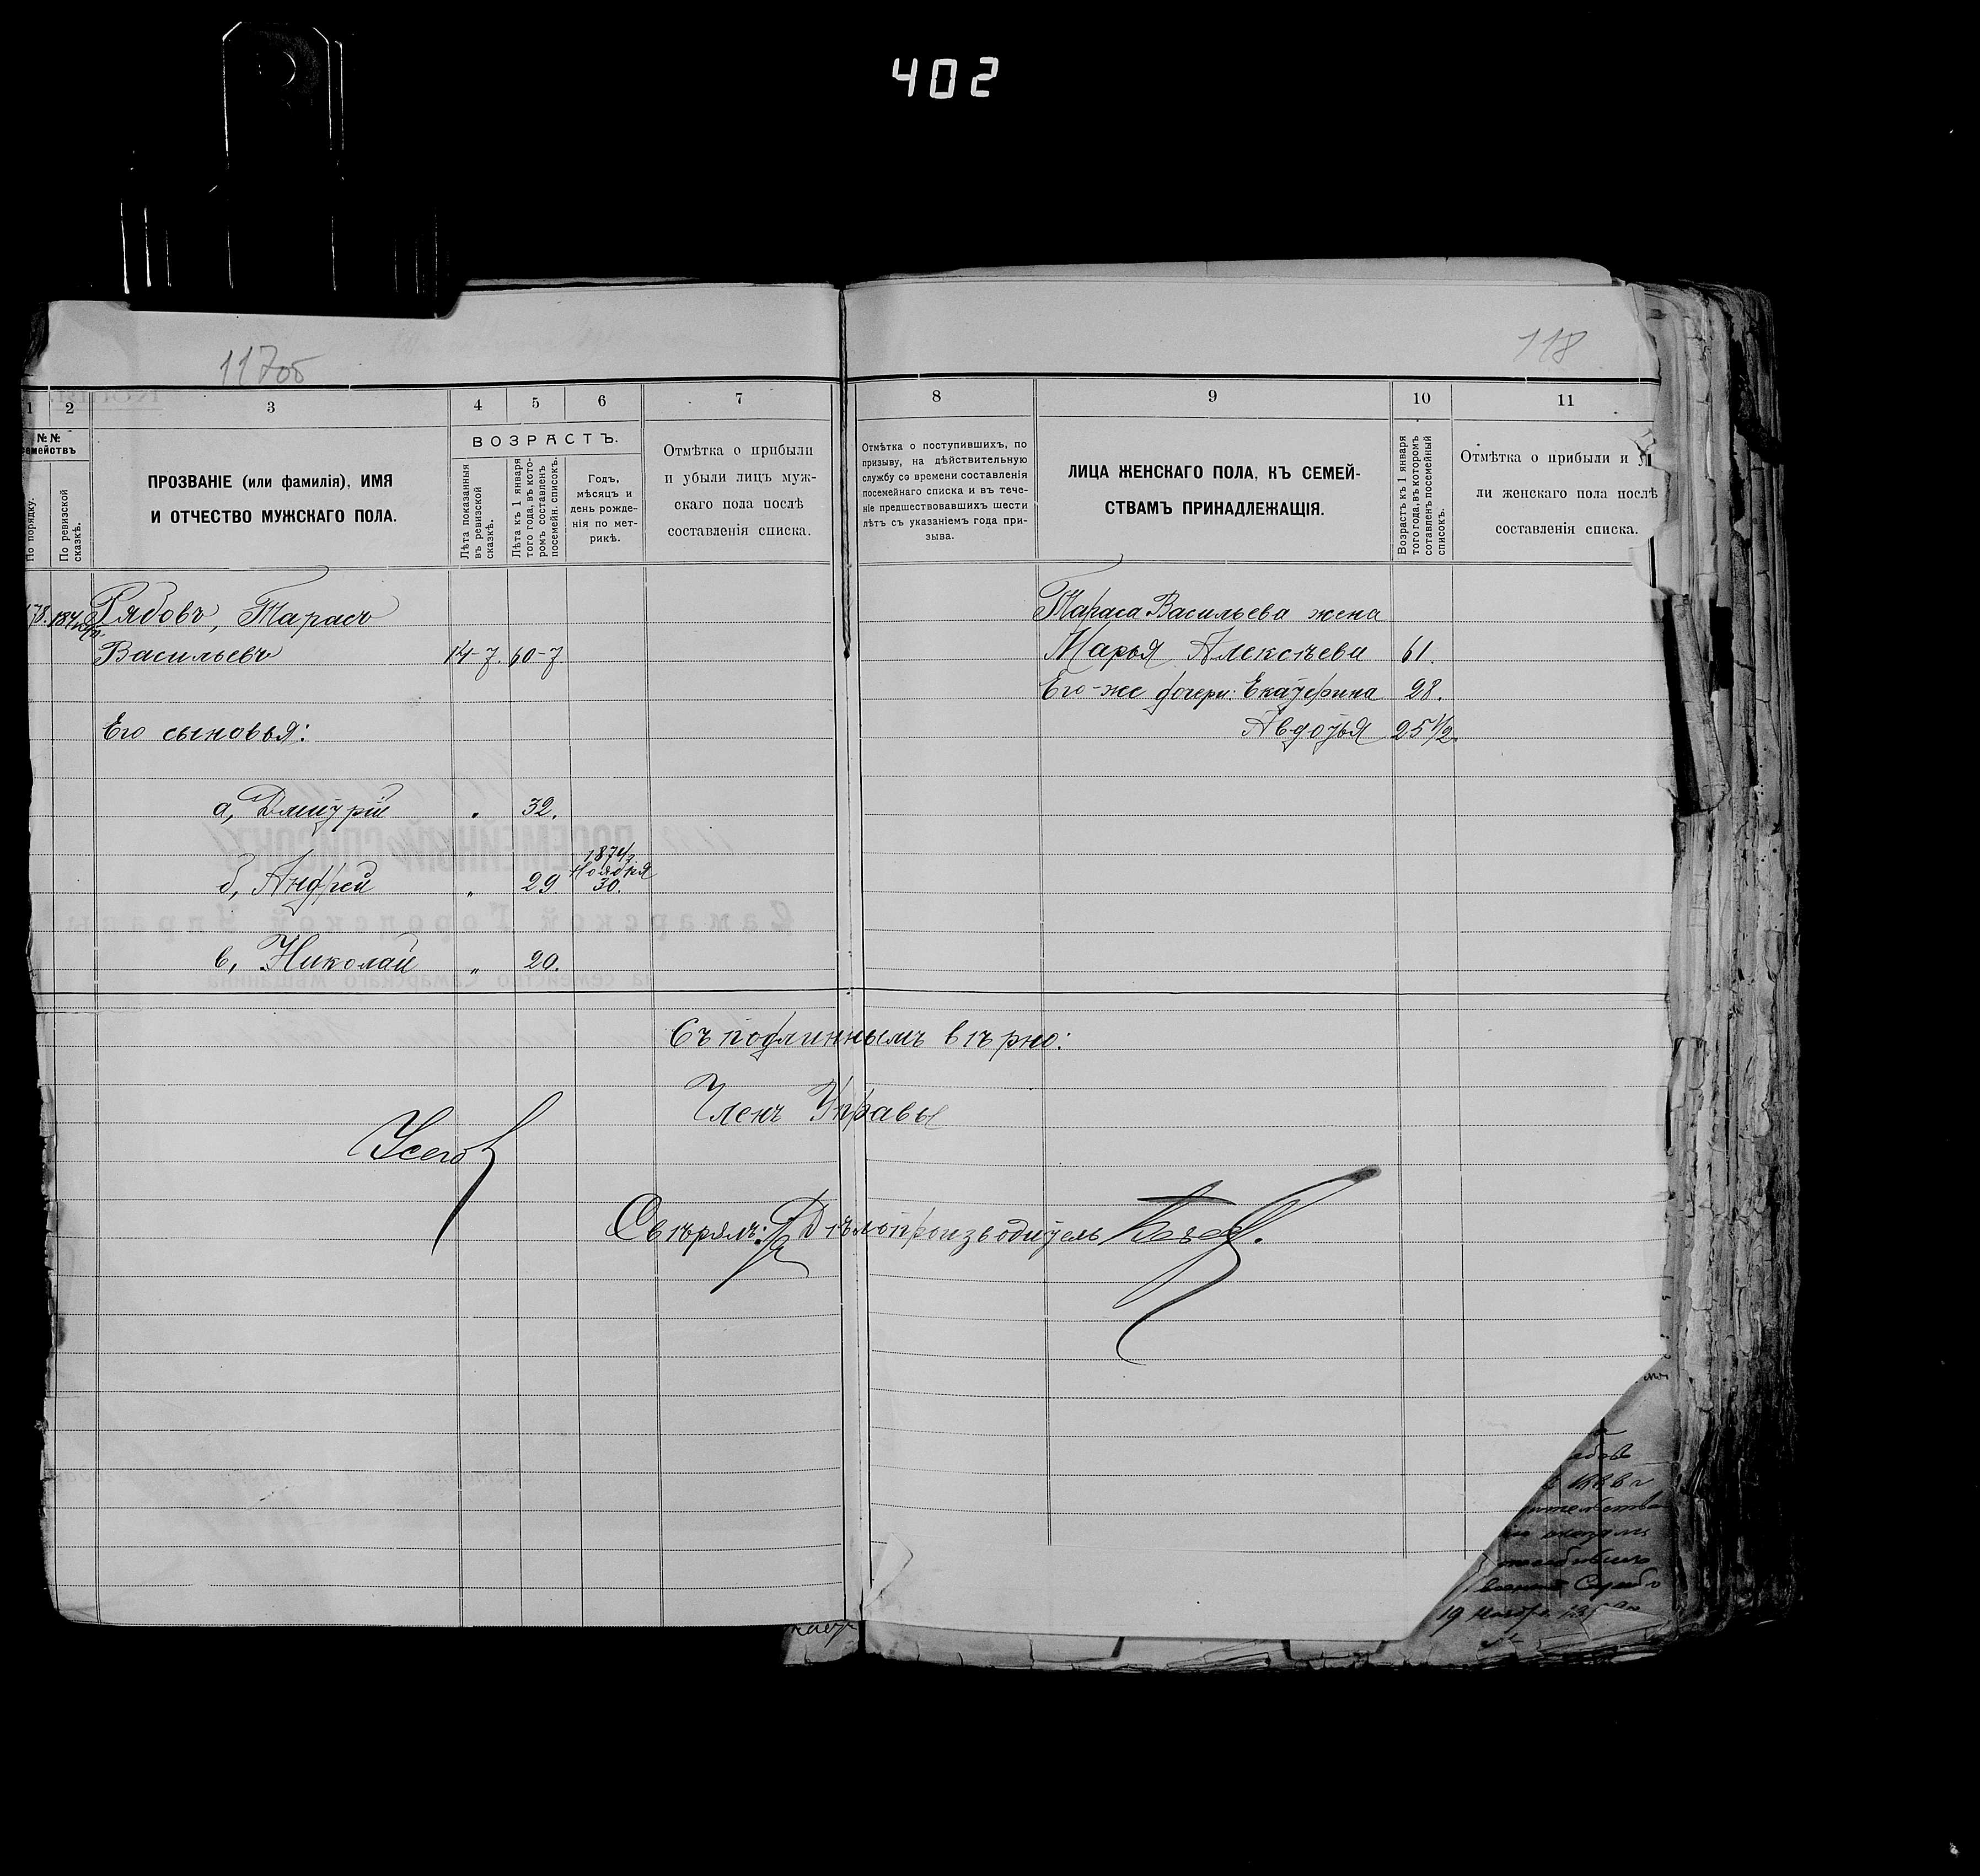 402
117об
118
1
2
3
4
5
6
7
8
9
10
11
№№
семействъ
По порядку.
По ревизской
сказкѣ.
ПРОЗВАНІЕ (или фамилія), ИМЯ
И ОТЧЕСТВО МУЖСКАГО ПОЛА.
ВОЗРАСТЪ.
Лѣта показанныя
въ ревизской
сказкѣ.
Лѣта къ 1 января
того года, въ кото-
ромъ составленъ
посемейн. списокъ.
Годъ,
мѣсяцъ и
день рожде-
нія по мет-
рикѣ.
Отмѣтка о прибыли
и убыли лицъ муж-
скаго пола послѣ
составленія списка.
Отмѣтка о поступившихъ, по
призыву, на дѣйствительную
службу со времени составленія
посемейнаго списка и въ тече-
ніе предшествовавшихъ шести
лѣтъ съ указаніемъ года при-
зыва.
ЛИЦА ЖЕНСКАГО ПОЛА, КЪ СЕМЕЙ-
СТВАМЪ ПРИНАДЛЕЖАЩІЯ.
Возрастъ къ 1 января
того года, въ которомъ
сотавленъ посемейный
списокъ.
Отмѣтка о прибыли и
ли женскаго пола послѣ
составленія списка.
Рябовъ, Тарасъ
Васильевъ 14-7. 60-7.
Его сыновья:
а, Дмитрій „ 32.
1874 г.
Ноября
б, Андрей „ 29. 30.
в, Николай „ 20.
Тараса Васильева жена
Марья Алексѣева 61.
Его-же дочери: Екатерина 28.
Авдотья 25½.
Съ подлиннымъ вѣрно:
Членъ Управы
Свѣрялъ: Дѣлопроизводитель
19